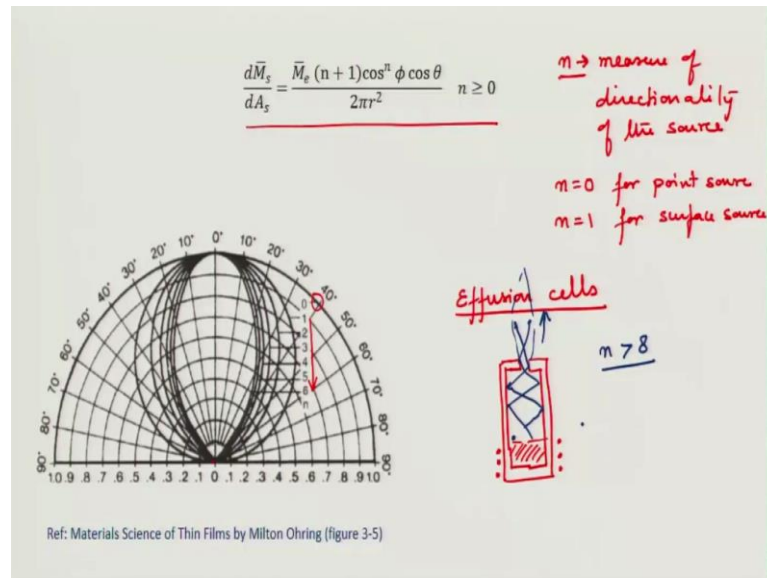 dM̄s/dAs = M̄e (n + 1)cosⁿ ϕ cos θ / 2πr² n ≥ 0
n → measure of
directionality
of the source
n=0 for point source
n=1 for surface source
Effusion cells
n > 8
0°
10° 10°
20° 20°
30° 30°
40° 40°
50° 50°
60° 60°
70° 70°
80° 80°
90° 90°
0
1
2
3
4
5
6
n
1.0 .9 .8 .7 .6 .5 .4 .3 .2 .1 0 .1 .2 .3 .4 .5 .6 .7 .8 .9 1.0
Ref: Materials Science of Thin Films by Milton Ohring (figure 3-5)